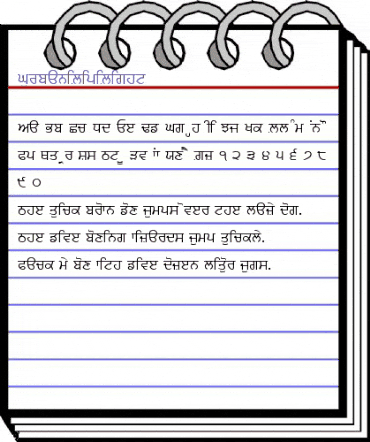 ਘਰਬੳਨਲਿਪਿਲਿਗਿਹਟ
ਅੳ ਭਬ ਛਚ ਧਦ ੳਏ ਢਡ ਘਗ ੍ਹਹ ੀਿ ਝਜ ਖਕ ਲ਼ਲ ੰਮ ਂਨ ੌੋ
ਫਪ ਥਤ ੍ਰਰ ਸ਼ਸ ਠਟ ੂੁ ੜਵ ਾਂ ਯਣ ੈੇ ਗ਼ਜ਼ ੧ ੨ ੩ ੪ ੫ ੬ ੭ ੮
੯ ੦
ਠਹਏ ਤੁਚਿਕ ਬਰੋਾਨ ਡੋਣ ਜੁਮਪਸ ੋਵਏਰ ਟਹਏ ਲੳਜ਼ੇ ਦੋਗ.
ਠਹਏ ਡਵਿਏ ਬੋਣਨਿਗ ਾਜ਼ਿੳਰਦਸ ਜੁਮਪ ਤੁਚਿਕਲੇ.
ਫੳਚਕ ਮੇ ਬੋਣ ਾਟਿਹ ਡਵਿਏ ਦੋਜ਼ਏਨ ਲਤਿੁੋਰ ਜੁਗਸ.